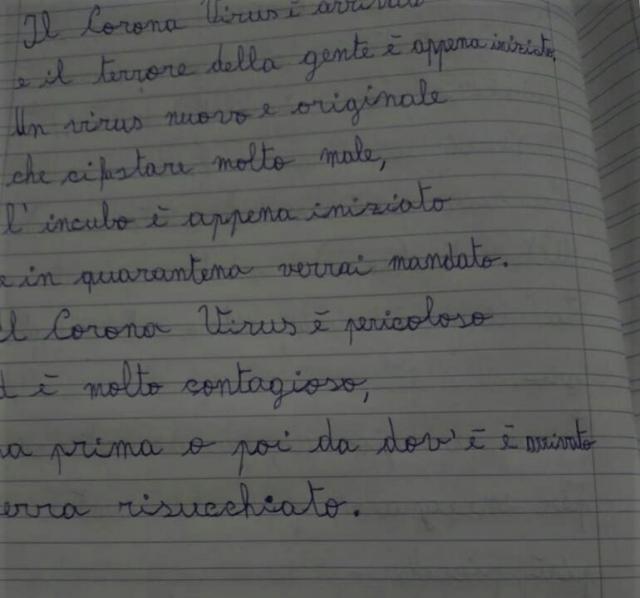 Il Corona Virus è arrivato
e il terrore della gente è appena iniziato,
Un virus nuovo e originale
che ci fa stare molto male,
l'incubo è appena iniziato
e in quarantena verrai mandato.
Il Corona Virus è pericoloso
è molto contagioso,
ma prima o poi da dov'è è arrivato
verrà risucchiato.